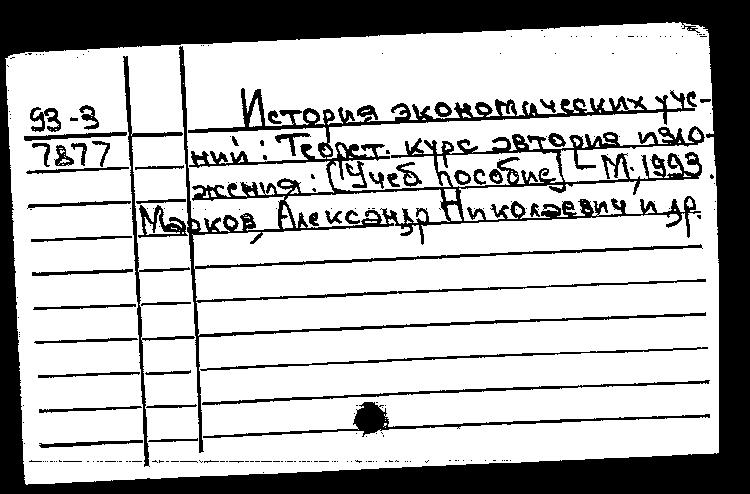 93-3
7877
История экономических уче-
ний: Теорет. курс автория изло-
жения: [Учеб пособие] - М, 1993.
Марков, Александр Николаевич и др.